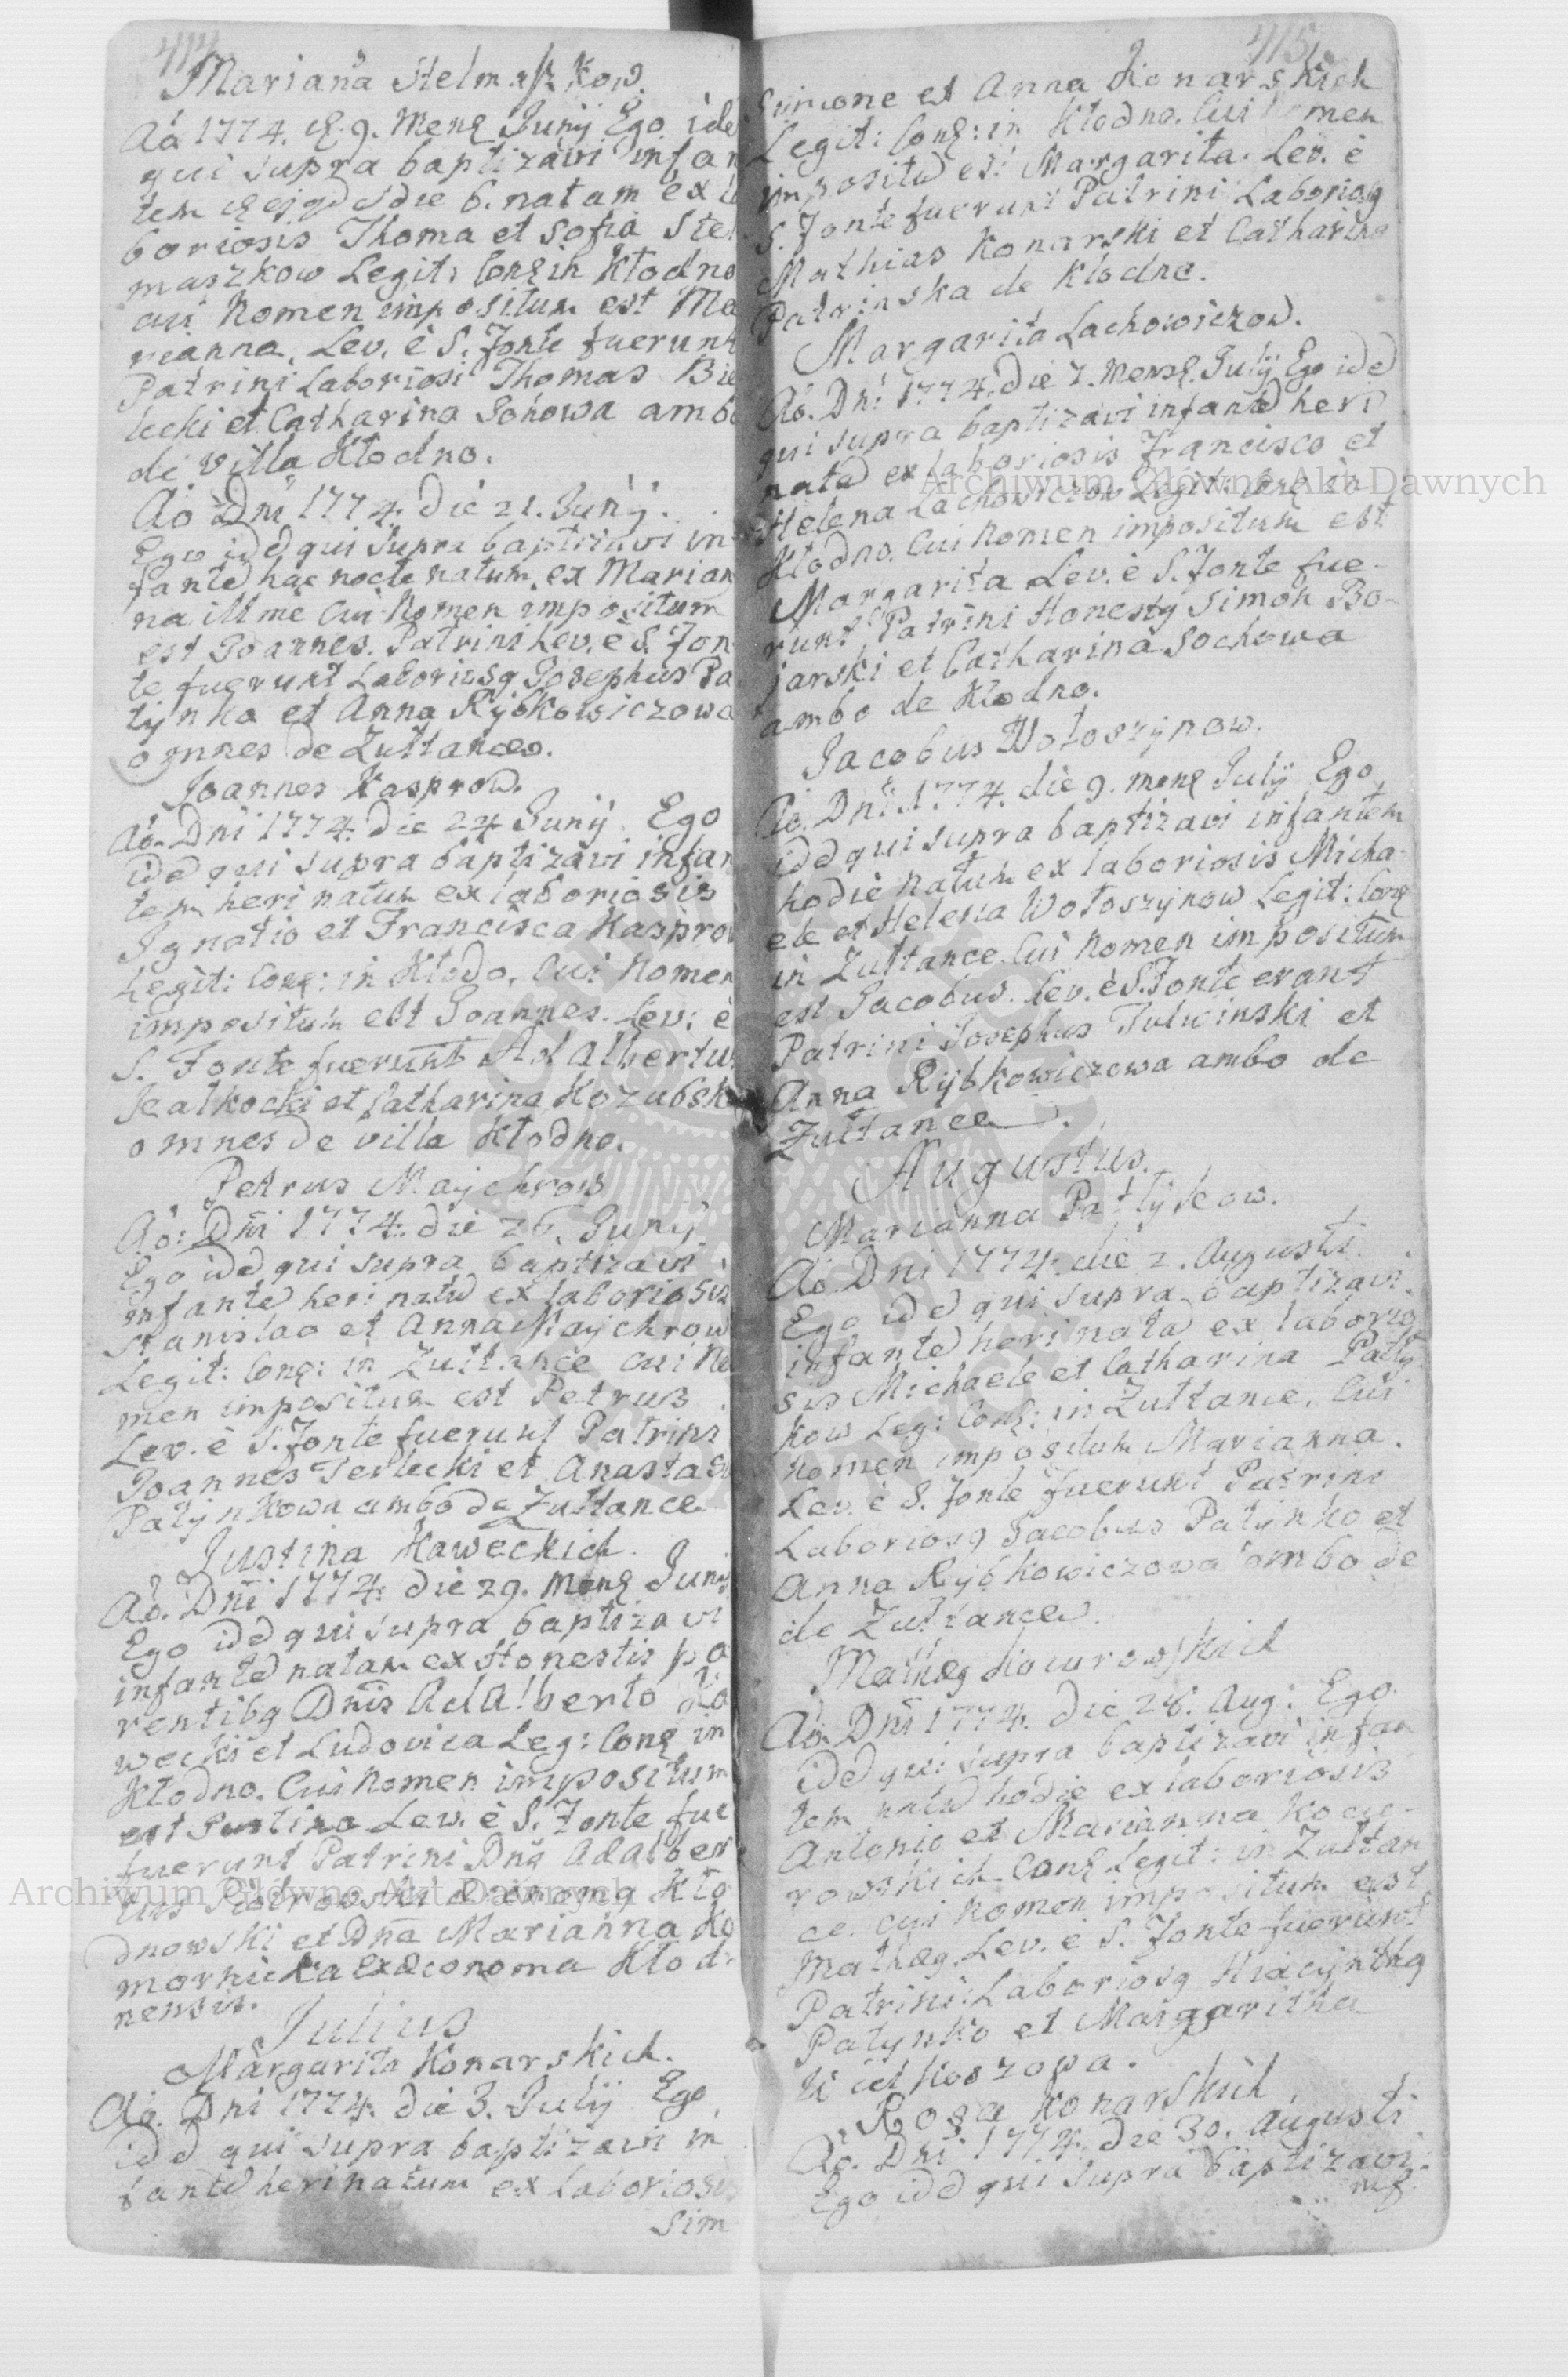 414
Mariana Stelmaszkow.
Ao 1774. d. 9. Mens. Junij Ego ide
qui supra baptizavi infan
tem ejgd die 6. natam ex la
boriosis Thoma et Sofia Stel
maszkow Legit: Conj: in Kłodno
cui Nomen impositum est Ma
rianna. Lev. è S. Fonte fuerunt
Patrini Laboriosi Thomas Bie
lecki et Catharina Sohowa ambo
de Villa Kłodno.
Ao Dni 1774. Die 21. Junij.
Ego idd qui supra baptizavi in
fantd hac nocte natum, ex Marian
na illme Cui Nomen impositum
est Joannes. Patrini Lev. è S. Fon
te fuerunt Laboriosg Josephus Pa
tynka et Anna Rybkowiczowa
omnes de Zułtance.
Joannes Kasprow.
Ao. Dni 1774. Die 24 Junij Ego
idd qui supra baptizavi infan
tem heri natum ex laboriosis
Ignatio et Francisca Kasprow
Legit: Conj: in Kłodo, Cui Nomen
impositum est Joannes. Lev: è
S. Fonte fuerunt Adalbertus
Jeatkocki et Catharina Kozubsk
omnes de villa Kłodno.
Petrus Maychrow
Ao: Dni 1774. die 26. Junij.
Ego idd qui supra baptizavi
infantd heri natd ex laboriosis
Stanislao et Anna Maychrow
Legit: Conj: in Zułtance cui No
men impositum est Petrus
Lev. è S. Fonte fuerunt Patrini
Joannes Terlecki et Anastasia
Patynkowa ambo de Zułtance
Justina Kaweckich.
Ao. Dni 1774. die 29. mens Junij
Ego idd qui supra baptizavi
infantd natam ex Honestis pa
rentibg Dnis Adalberto Ka
wecki et Ludovica Leg: Conj in
Kłodno. Cui Nomen impositum
est Justina Lev. è S. Fonte fue
fuerunt Patrini Dng Adalber
tus Piotrowski Œconomg Kło
dnowski et Dna Marianna Ko
mornicka exœconoma Kłod
nensis.
Julius
Margarita Konarskich.
Ao. Dni 1774. die 3. Julij Ego
idd qui supra baptizavi in
fantd heri natum ex laboriosis
Sim
415
Simone et Anna Konarskich
Legit: Conj: in Kłodno. Cui Nomen
impositd est Margarita. Lev. è
S. Fonte fuerunt Patrini Laboriosg
Mathias Konarski et Catharina
Patrinska de Kłodno.
Margarita Lachowiczow.
Ao. Dni 1774. Die 7. Mens. Julij Ego idd
qui supra baptizavi infantd heri
natd ex laboriosis Francisco et
Helena Lachowiczow Legit: Conj in
Kłodno. Cui Nomen impositum est
Margarita Lev. è S. Fonte fue-
runt Patrini Honestg Simon Bo-
jarski et Catharina Sochowa
ambo de Kłodno.
Jacobus Wołoszynow.
Ao. Dni 1774. die 9. mens Julij Ego
idd qui supra baptizavi infantem
hodie natum ex laboriosis Micha-
ele et Helena Wołoszynow Legit: Conj
in Zułtance. Cui Nomen impositum
est Jacobus. Lev. è S. Fonte erant
Patrini Josephus Tulwinski et
Anna Rybkowiczowa ambo de
Zułtance.
Augustus.
Marianna Patyjkow.
Ao Dni 1774. die 2. Augusti.
Ego idd qui supra baptizavi
infantd heri natd ex laborio
sis Michaele et Catharina Paty
kow Leg: Conj: in Zułtance. Cui
Nomen impositum Marianna.
Lev. è S. Fonte fuerunt Patrini
Laboriosg Jacobus Patynko et
Anna Rybkowiczowa ambo de
de Zułtance.
Mathæg Kocurowskich
Ao. Dni 1774. Die 28. Aug: Ego
idd qui supra baptizavi infan
tem natd hodie ex laboriosis
Antonio et Marianna Kocu-
rowskich Conj Legit: in Zułtan
ce. cui Nomen impositum est
Mathæg. Lev. è S. Fonte fuerunt
Patrini Laboriosg Hiacynthg
Patynko et Margaritha
Rosa Konarskich
Ao. Dni 1774. die 30. Augusti
Ego idd qui supra baptizavi
inf
Archiwum Główne Akt Dawnych
Archiwum Główne Akt Dawnych